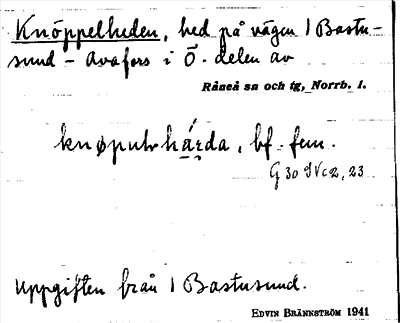 Knöppelheden, hed på vägen 1 Bastu-
sund - Avafors i Ö. delen av
Råneå sn och tg, Norrb. l.
knøpulhá̱r̥da, bf. fem.
G 30 IV c 2, 23
Uppgiften från 1 Bastusund.
EDVIN BRÄNNSTRÖM 1941